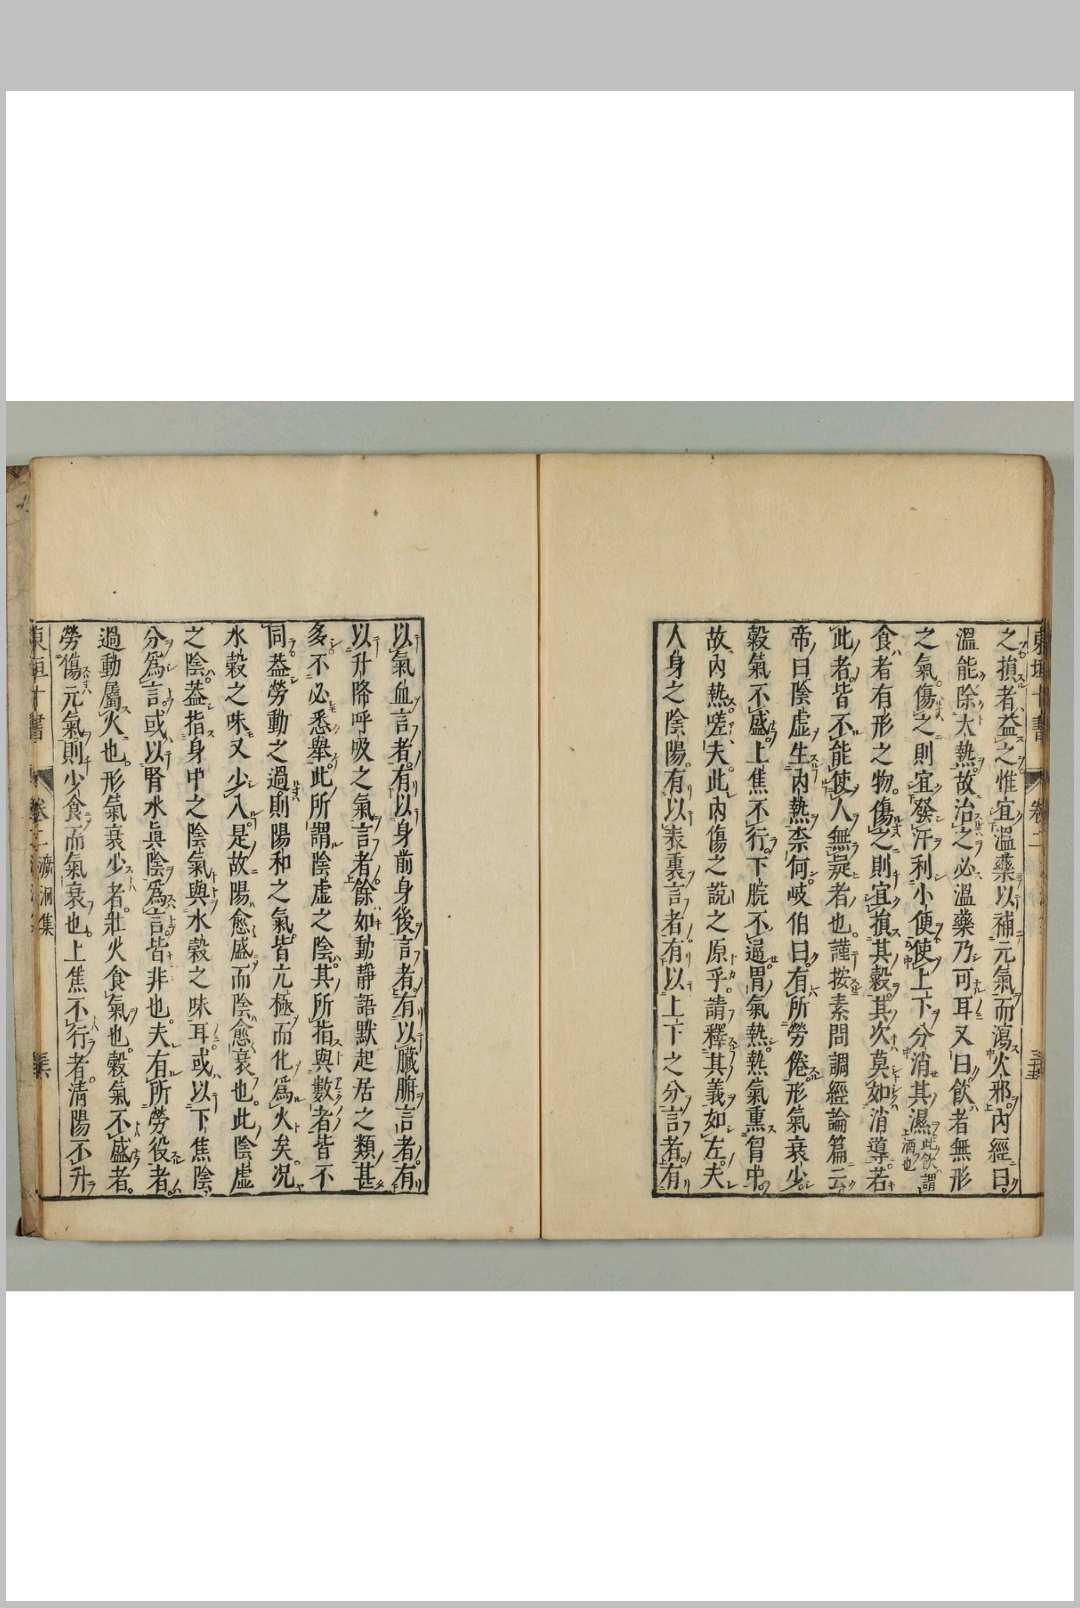 東垣十書 卷二 三十五
之損者益之惟宜溫藥以補元氣而瀉火邪內經曰
溫能除大熱故治之必溫藥乃可耳又曰飲者無形
之氣傷之則宜發汗利小便使上下分消其濕此飲謂酒也
食者有形之物傷之則宜損其穀其次莫如消導若
此者皆不能使人無疑者也謹按素問調經論篇云
帝曰陰虛生內熱柰何岐伯曰有所勞倦形氣衰少
穀氣不盛上焦不行下脘不通胃氣熱熱氣熏胷中
故內熱嗟夫此內傷之說之原乎請釋其義如左夫
人身之陰陽有以表裏言者有以上下之分言者有
以氣血言者有以身前身後言者有以臟腑言者有
以升降呼吸之氣言者餘如動靜語默起居之類甚
多不必悉舉此所謂陰虛之陰其所指與數者皆不
同葢勞動之過則陽和之氣皆亢極而化爲火矣况
水穀之味又少入是故陽愈盛而陰愈衰也此陰虛
之陰葢指身中之陰氣與水穀之味耳或以下焦陰
分爲言或以腎水眞陰爲言皆非也夫有所勞役者
過動屬火也形氣衰少者壯火食氣也穀氣不盛者
勞傷元氣則少食而氣衰也上焦不行者清陽不升
東垣十書 卷二 溯洄集